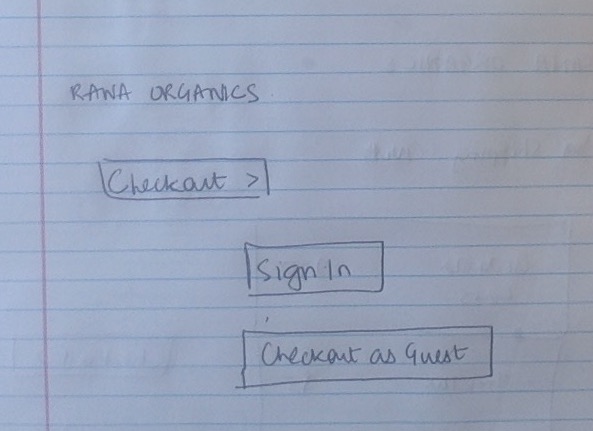 RAWA ORGANICS
Checkout >
Sign In
Checkout as Guest